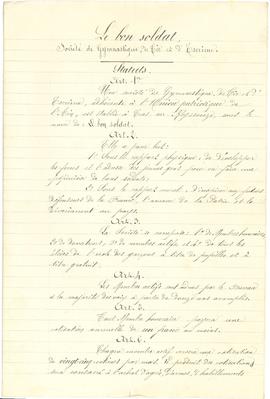 Le bon soldat.
Société de Gymnastique, de Tir et d'Escrime.
Statuts.
Art. 1er
Une société de Gymnastique, de Tir et d'
Escrime, adhérente à l'Union patriotique de
l' est établie à sous le
nom de : Le bon soldat.
Art. 2.
Elle a pour but :
1° Sous le rapport physique, de développer
les forces et l'adresse des jeunes gens pour en faire une
de bons soldats ;
2° Sous le rapport moral, d'inspirer aux futurs
défenseurs de la France, l'amour de la Patrie et le
dévouement au pays.
Art. 3.
La Société se compose : 1° de Membres honoraires
et de donateurs ; 2° de membres actifs et 3° de tous les
élèves de l'école des garçons à titre de pupilles et à
titre gratuit.
Art. 4.
Les Membres actifs sont admis par le Bureau
à la majorité des voix à partir de douze ans accomplis.
Art. 5.
Tout Membre honoraire payera une
cotisation annuelle de un franc au moins.
Art. 6.
Chaque membre actif versera une cotisation
de vingt-cinq centimes par mois. Le produit des cotisations
sera consacré à l'achat d'agrès, d'armes, d'habillements